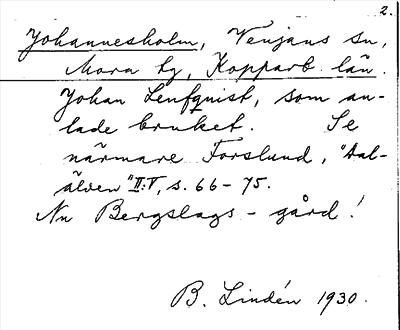 2.
Johannesholm, Venjans sn,
Mora tg, Kopparb. län.
Johan Lenfqvist, som an-
lade bruket. Se
närmare Forslund, "Dal-
älven" II:V, s. 66-75.
Nu Bergslags-gård!
B. Lindén 1930.